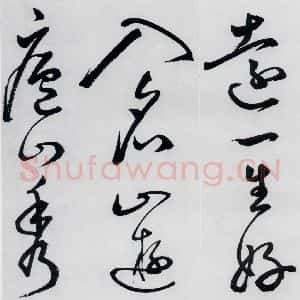 遠一生好
入名山遊
廬山秀
Shufawang.CN